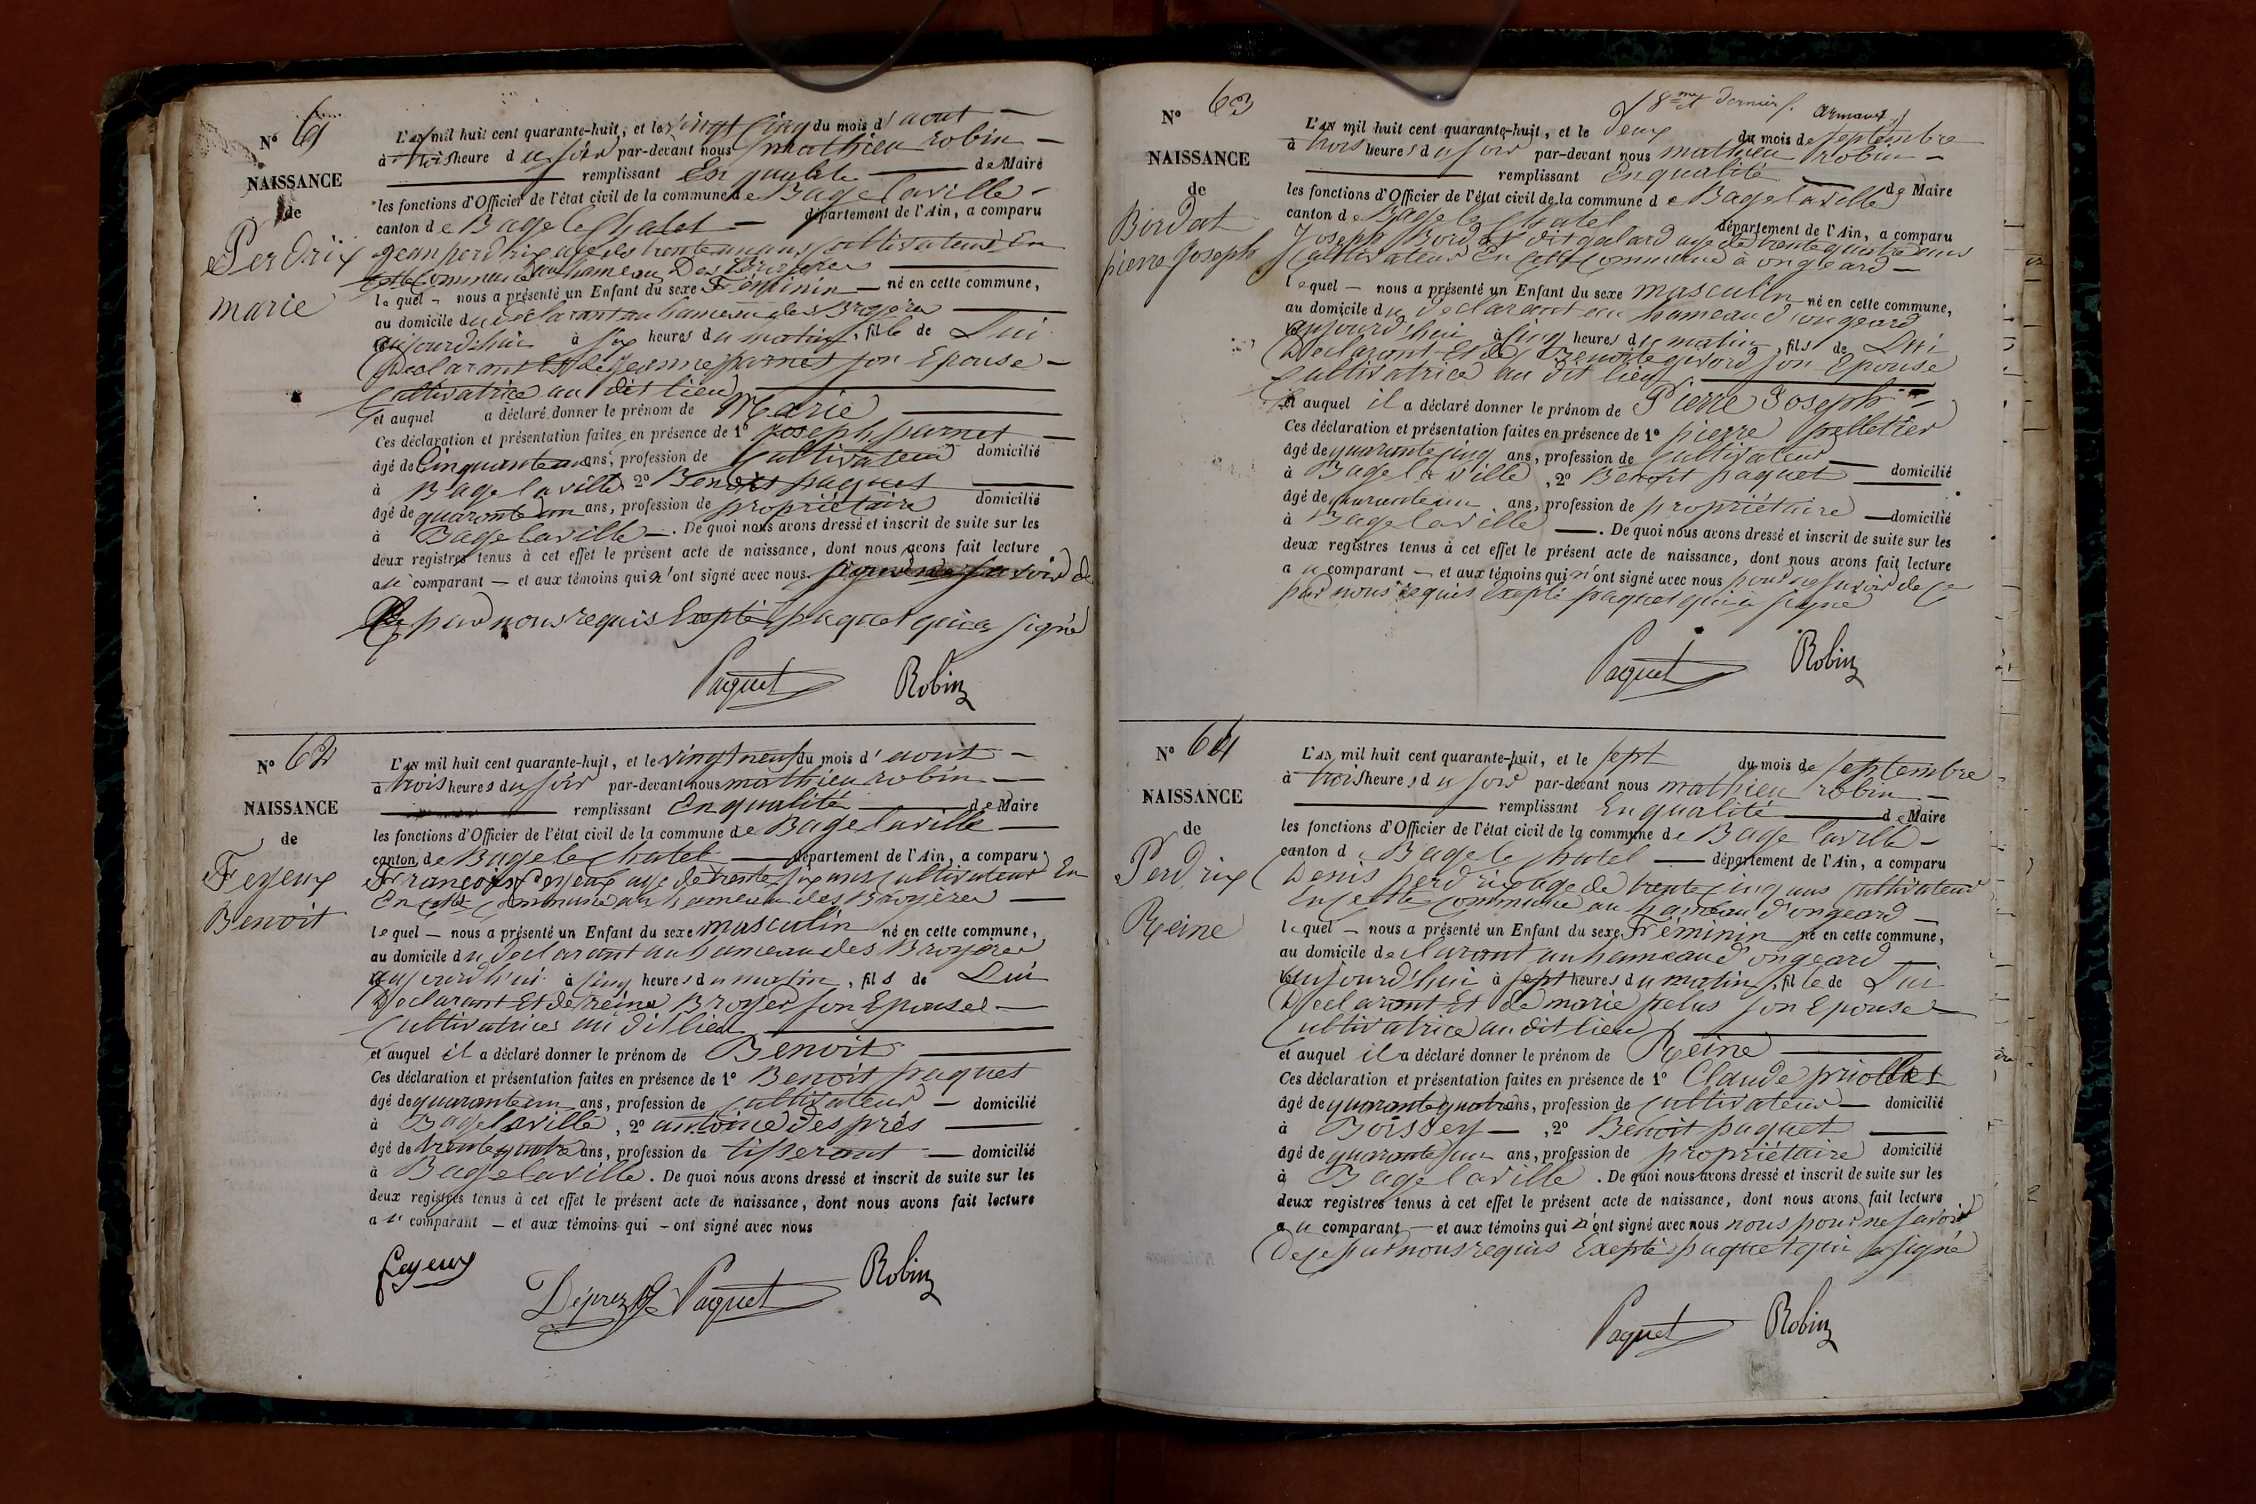 N° 61
NAISSANCE
de
Perdrix
marie
L'AN mil huit cent quarante-huit, et le vingt cinq du mois d'aout —
à trois heure du soir par-devant nous mathieu robin —
remplissant En qualité — de Maire
les fonctions d'Officier de l'état civil de la commune de Bage laville —
canton de Bage le Chatel — département de l'Ain, a comparu
jean perdrix age de trente un ans cultivateur En
cette Commune au hameau Des Broyères —
lequel — nous a présenté un Enfant du sexe Féminin — né en cette commune,
au domicile du declarant au hameau des Broyères —
aujourd'hui à six heures du matin, fille de Lui
Declarant Et de jeanne parnet son Epouse —
Cultivatrice au dit lieu —
et auquel a déclaré donner le prénom de Marie —
Ces déclaration et présentation faites en présence de 1° joseph parnet —
âgé de Cinquante ans, profession de Cultivateur domicilié
à Bage laville 2° Benoit paquet —
âgé de quarante un ans, profession de propriétaire domicilié
à Bage laville —. De quoi nous avons dressé et inscrit de suite sur les
deux registres tenus à cet effet le présent acte de naissance, dont nous avons fait lecture
au comparant — et aux témoins qui n'ont signé avec nous pour ne savoir de
Ce par nous requis Exepté paquet qui a signé
Paquet Robin
N° 62
NAISSANCE
de
Feyeux
Benoit
L'AN mil huit cent quarante-huit, et le vingt neuf du mois d'aout —
à trois heures du soir par-devant nous mathieu robin —
remplissant En qualité — de Maire
les fonctions d'Officier de l'état civil de la commune de Bage laville —
canton de Bage le Chatel — département de l'Ain, a comparu
François Feyeux age de trente six ans Cultivateur En
En cette Commune au hameau des Broyères —
lequel — nous a présenté un Enfant du sexe masculin né en cette commune,
au domicile du declarant au hameau des Broyères
aujourd'hui à cinq heures du matin, fils de Lui
Declarant Et de reine Broyer son Epouse —
Cultivatrice au dit lieu —
et auquel il a déclaré donner le prénom de Benoit —
Ces déclaration et présentation faites en présence de 1° Benoit paquet
âgé de quarante un ans, profession de Cultivateur — domicilié
à Bage laville, 2° antoine Després —
âgé de trente quatre ans, profession de tisserant — domicilié
à Bage laville. De quoi nous avons dressé et inscrit de suite sur les
deux registres tenus à cet effet le présent acte de naissance, dont nous avons fait lecture
au comparant — et aux témoins qui — ont signé avec nous
feyeux Déprez Paquet Robin
N° 63
NAISSANCE
de
Bordat
pierre Joseph
dernier
L'AN mil huit cent quarante-huit, et le deux du mois de septembre
à trois heures du soir par-devant nous mathieu robin —
remplissant En qualité — de Maire
les fonctions d'Officier de l'état civil de la commune de Bage laville
canton de Bage le Chatel département de l'Ain, a comparu
Joseph Bordat dit galard age de trente quatre ans
Cultivateur En cette Commune à ongeard —
lequel — nous a présenté un Enfant du sexe masculin né en cette commune,
au domicile du declarant au hameau d'ongeard
aujourd'hui à cinq heures du matin, fils de Lui
Declarant Et de Benoite givord son Epouse
Cultivatrice au dit lieu —
et auquel il a déclaré donner le prénom de Pierre Joseph —
Ces déclaration et présentation faites en présence de 1° pierre pelletier
âgé de quarante cinq ans, profession de Cultivateur —
à Bage la ville, 2° Benoit paquet — domicilié
âgé de quarante un ans, profession de propriétaire — domicilié
à Bage laville —. De quoi nous avons dressé et inscrit de suite sur les
deux registres tenus à cet effet le présent acte de naissance, dont nous avons fait lecture
au comparant — et aux témoins qui n'ont signé avec nous pour ne savoir de Ce
par nous requis Exepté paquet qui a signé
Paquet Robin
N° 64
NAISSANCE
de
Perdrix
Reine
L'AN mil huit cent quarante-huit, et le sept du mois de septembre
à trois heures du soir par-devant nous mathieu robin —
remplissant En qualité — de Maire
les fonctions d'Officier de l'état civil de la commune de Bage laville —
canton de Bage le Chatel — département de l'Ain, a comparu
Denis perdrix age de trente cinq ans Cultivateur
En cette Commune au hameau d'ongeard —
lequel — nous a présenté un Enfant du sexe Féminin né en cette commune,
au domicile declarant au hameau d'ongeard —
aujourd'hui à sept heures du matin, fille de Lui
Declarant Et de marie pelus son Epouse —
Cultivatrice au dit lieu —
et auquel il a déclaré donner le prénom de Reine —
Ces déclaration et présentation faites en présence de 1° Claude priollet
âgé de quarante quatre ans, profession de Cultivateur — domicilié
à Boissey —, 2° Benoit paquet —
âgé de quarante un ans, profession de propriétaire domicilié
à Bage laville. De quoi nous avons dressé et inscrit de suite sur les
deux registres tenus à cet effet le présent acte de naissance, dont nous avons fait lecture
au comparant — et aux témoins qui n'ont signé avec nous nous pour ne savoir
de Ce par nous requis Exepté paquet qui a signé
Paquet Robin